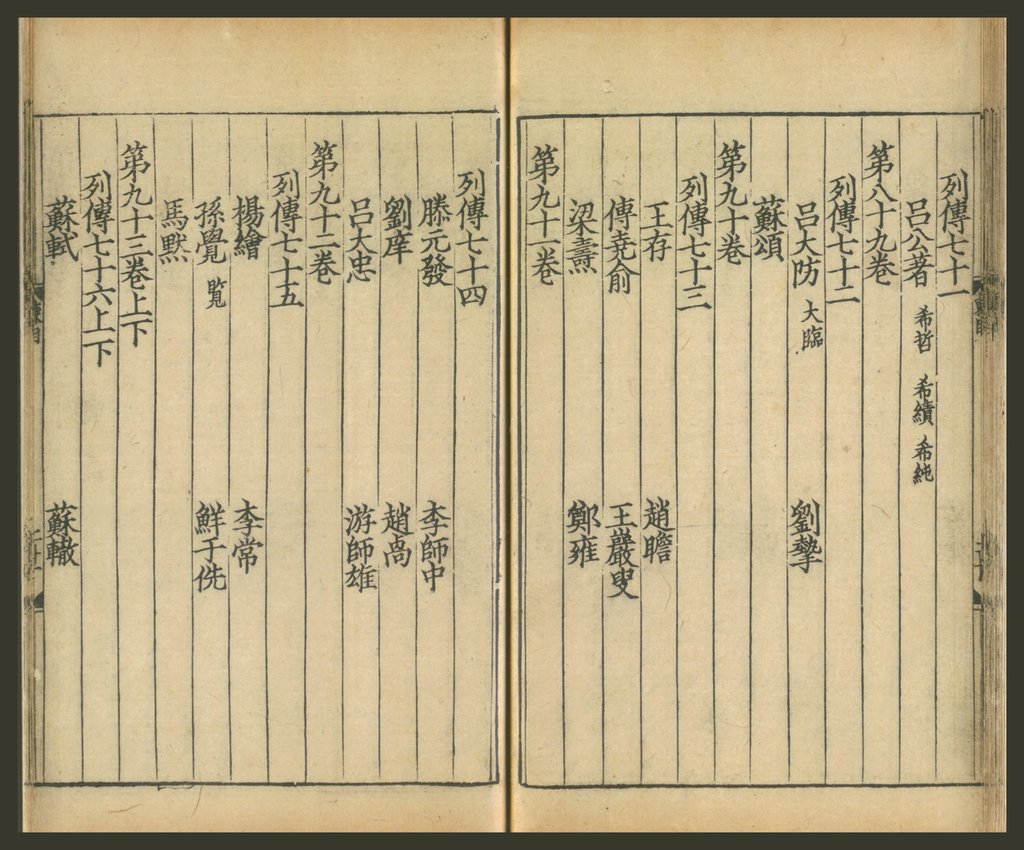 列傳七十一
呂公著 希哲 希績 希純
第八十九卷
列傳七十二
呂大防 大臨 劉摯
蘇頌
第九十卷
列傳七十三
王存 趙瞻
傅堯俞 王巖叟
梁燾 鄭雍
第九十一卷
列傳七十四
滕元發 李師中
劉庠 趙卨
呂大忠 游師雄
第九十二卷
列傳七十五
楊繪 李常
孫覺 覧 鮮于侁
馬默
第九十三卷上下
列傳七十六上下
蘇軾 蘇轍